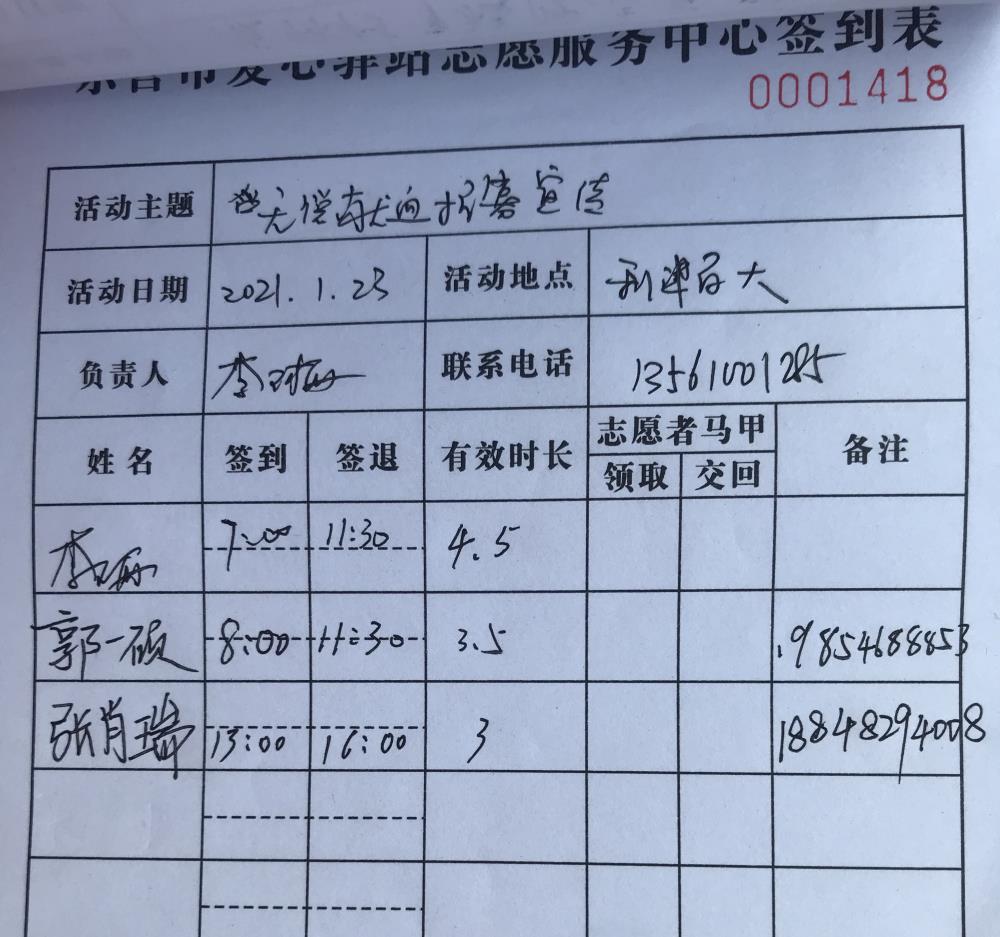 东营市爱心驿站志愿服务中心签到表
0001418
活动主题 无偿献血招募宣传
活动日期 2021.1.23 活动地点 利津百大
负责人 李 联系电话 13561001285
姓名 签到 签退 有效时长 志愿者马甲 备注
领取 交回
李 7:00 11:30 4.5
郭一硕 8:00 11:30 3.5 19854688853
张肖瑞 13:00 16:00 3 18848294008